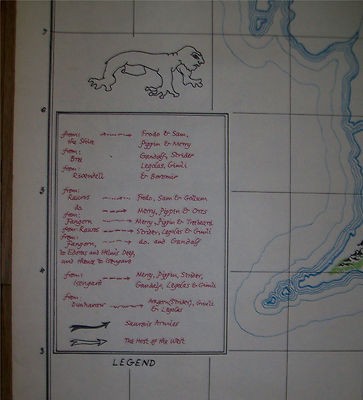 7
6
5
4
3
from: Frodo & Sam,
the Shire Pippin & Merry
from: Gandalf, Strider
Bree Legolas, Gimli
from: & Boromir
Rivendell
from:
Rauros Frodo, Sam & Gollum
do. Merry, Pippin & Orcs
from:
Fangorn Merry, Pippin & Treebeard
from: Rauros Strider, Legolas & Gimli
from:
Fangorn, do. and Gandalf
to Edoras and Helm's Deep,
and thence to Isengard
from: Merry, Pippin, Strider,
Isengard Gandalf, Legolas & Gimli
from:
Dunharrow Aragorn (Strider), Gimli
& Legolas
Sauron's Armies
The Host of the West
LEGEND